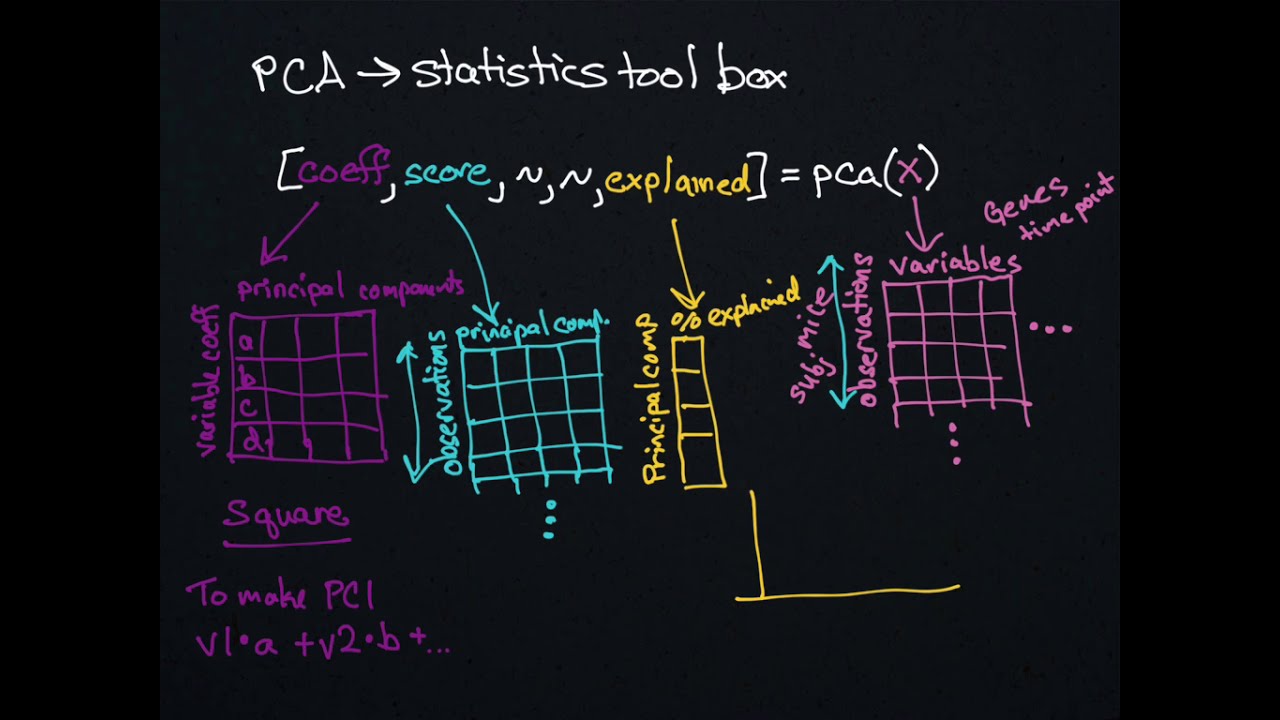 PCA → statistics tool box
[coeff, score, ~, ~, explained] = pca(X)
Genes
time point
variables
observations
subj. mice
...
...
principal components
variable coeff
a
b
c
d
Square
To make PC1
v1•a + v2•b + ...
principal comp.
observations
...
% explained
Principal comp